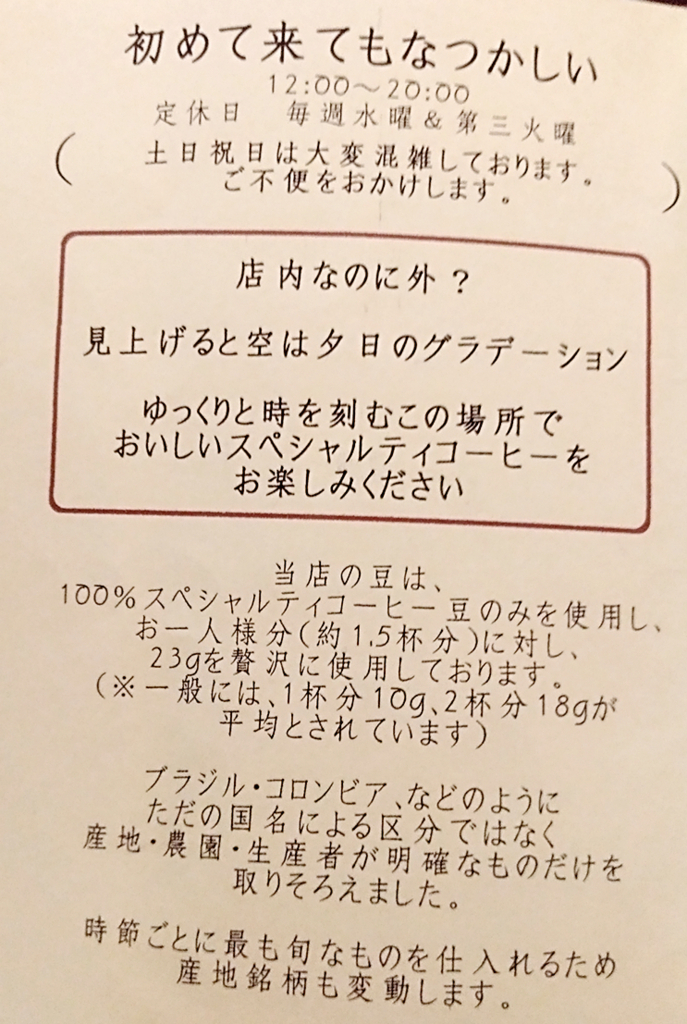 初めて来てもなつかしい
12:00〜20:00
定休日 毎週水曜&第三火曜
(土日祝日は大変混雑しております。
ご不便をおかけします。)
店内なのに外?
見上げると空は夕日のグラデーション
ゆっくりと時を刻むこの場所で
おいしいスペシャルティコーヒーを
お楽しみください
当店の豆は、
100%スペシャルティコーヒー豆のみを使用し、
お一人様分(約1.5杯分)に対し、
23gを贅沢に使用しております。
(※一般には、1杯分10g、2杯分18gが
平均とされています)
ブラジル・コロンビア、などのように
ただの国名による区分ではなく
産地・農園・生産者が明確なものだけを
取りそろえました。
時節ごとに最も旬なものを仕入れるため
産地銘柄も変動します。